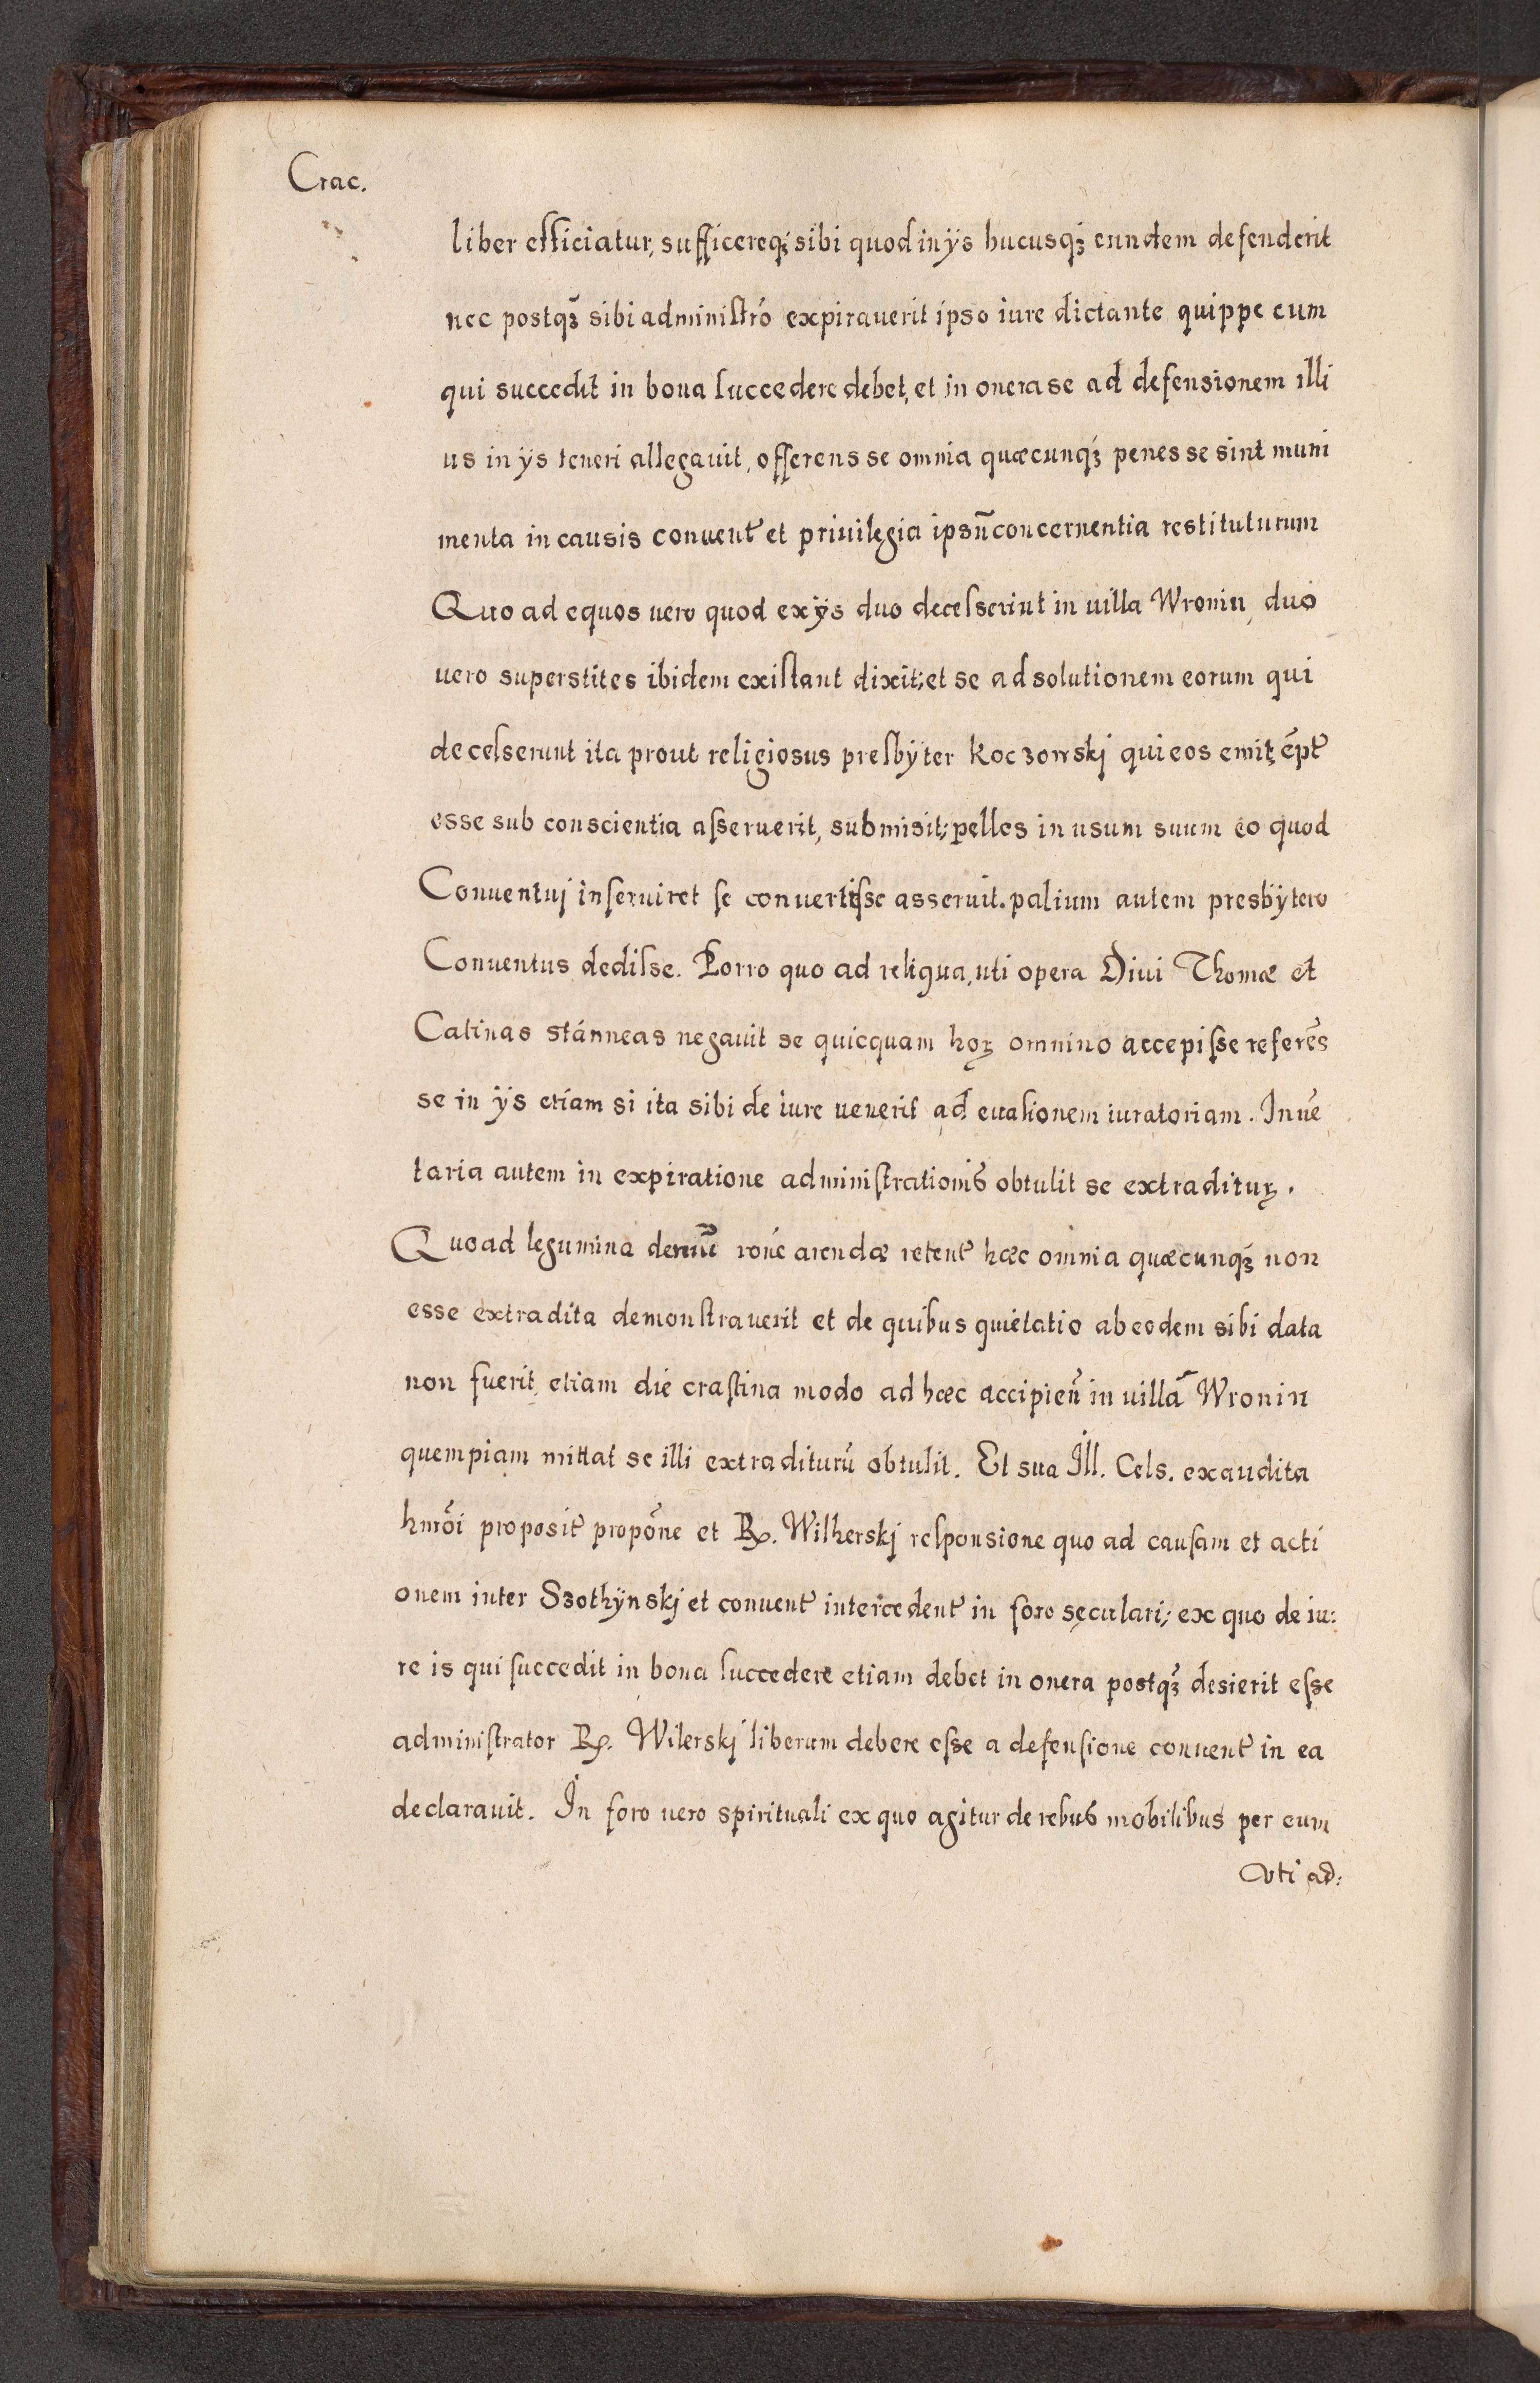 Crac.
liber efficiatur, sufficereqꝫ sibi quod in ÿs hucusqꝫ eundem defenderit
nec postqꝫ̃ sibi administrō expirauerit ipso iure dictante quippe cum
qui succedit in bona ſuccedere debet, et in onera se ad defensionem illi
us in ÿs teneri allegauit, offerens se omnia quæcunqꝫ penes se sint muni
menta in causis conuent̃ et priuilegia ipsũ concernentia restituturum
Quo ad equos uero quod ex ÿs duo deceſserint in uilla Wronin, duo
uero superstites ibidem exiſtant dixit; et se ad solutionem eorum qui
deceſserunt ita prout religiosus preſbÿter Koczowskj qui eos emit, ẽpt̃
esse sub conscientia aſseruerit, submisit; pelles in usum suum eo quod
Conuentuj inſeruiret ſe conuertiſse asseruit. palium autem presbÿtero
Conuentus dediſse. Porro quo ad reliqua, uti opera Diui Thomæ et
Catinas stánneas negauit se quicquam hoꝝ omnino accepiſse referẽs
se in ÿs etiam si ita sibi de iure uenerit ad euaſionem iuratoriam. Inuẽ
taria autem in expiratione adminiſtrationis obtulit se extradituꝝ.
Quoad legumina demũ rõne arendæ retent̃ hæc omnia quæcunqꝫ non
esse extradita demonſtrauerit et de quibus quietatio ab eodem sibi data
non fuerit, etiam die craſtina modo ad hæc accipieñ in uillã Wronin
quempiam mittat se illi extraditurũ obtulit. Et sua Ill. Cels. exaudita
hmõi proposit̃ propõne et R. Wilherskj reſponsione quo ad cauſam et acti
onem inter Szothÿnskj et conuent̃ intercedent̃ in foro sęculari; ex quo de iu:
re is qui ſuccedit in bona ſuccedere etiam debet in onera postqꝫ̃ desierit eſse
adminiſtrator R. Wilerskj liberum debere eſse a defenſione conuent̃ in ea
declarauit. In foro uero spirituali ex quo agitur de rebus mobilibus per eum
Vti ad: